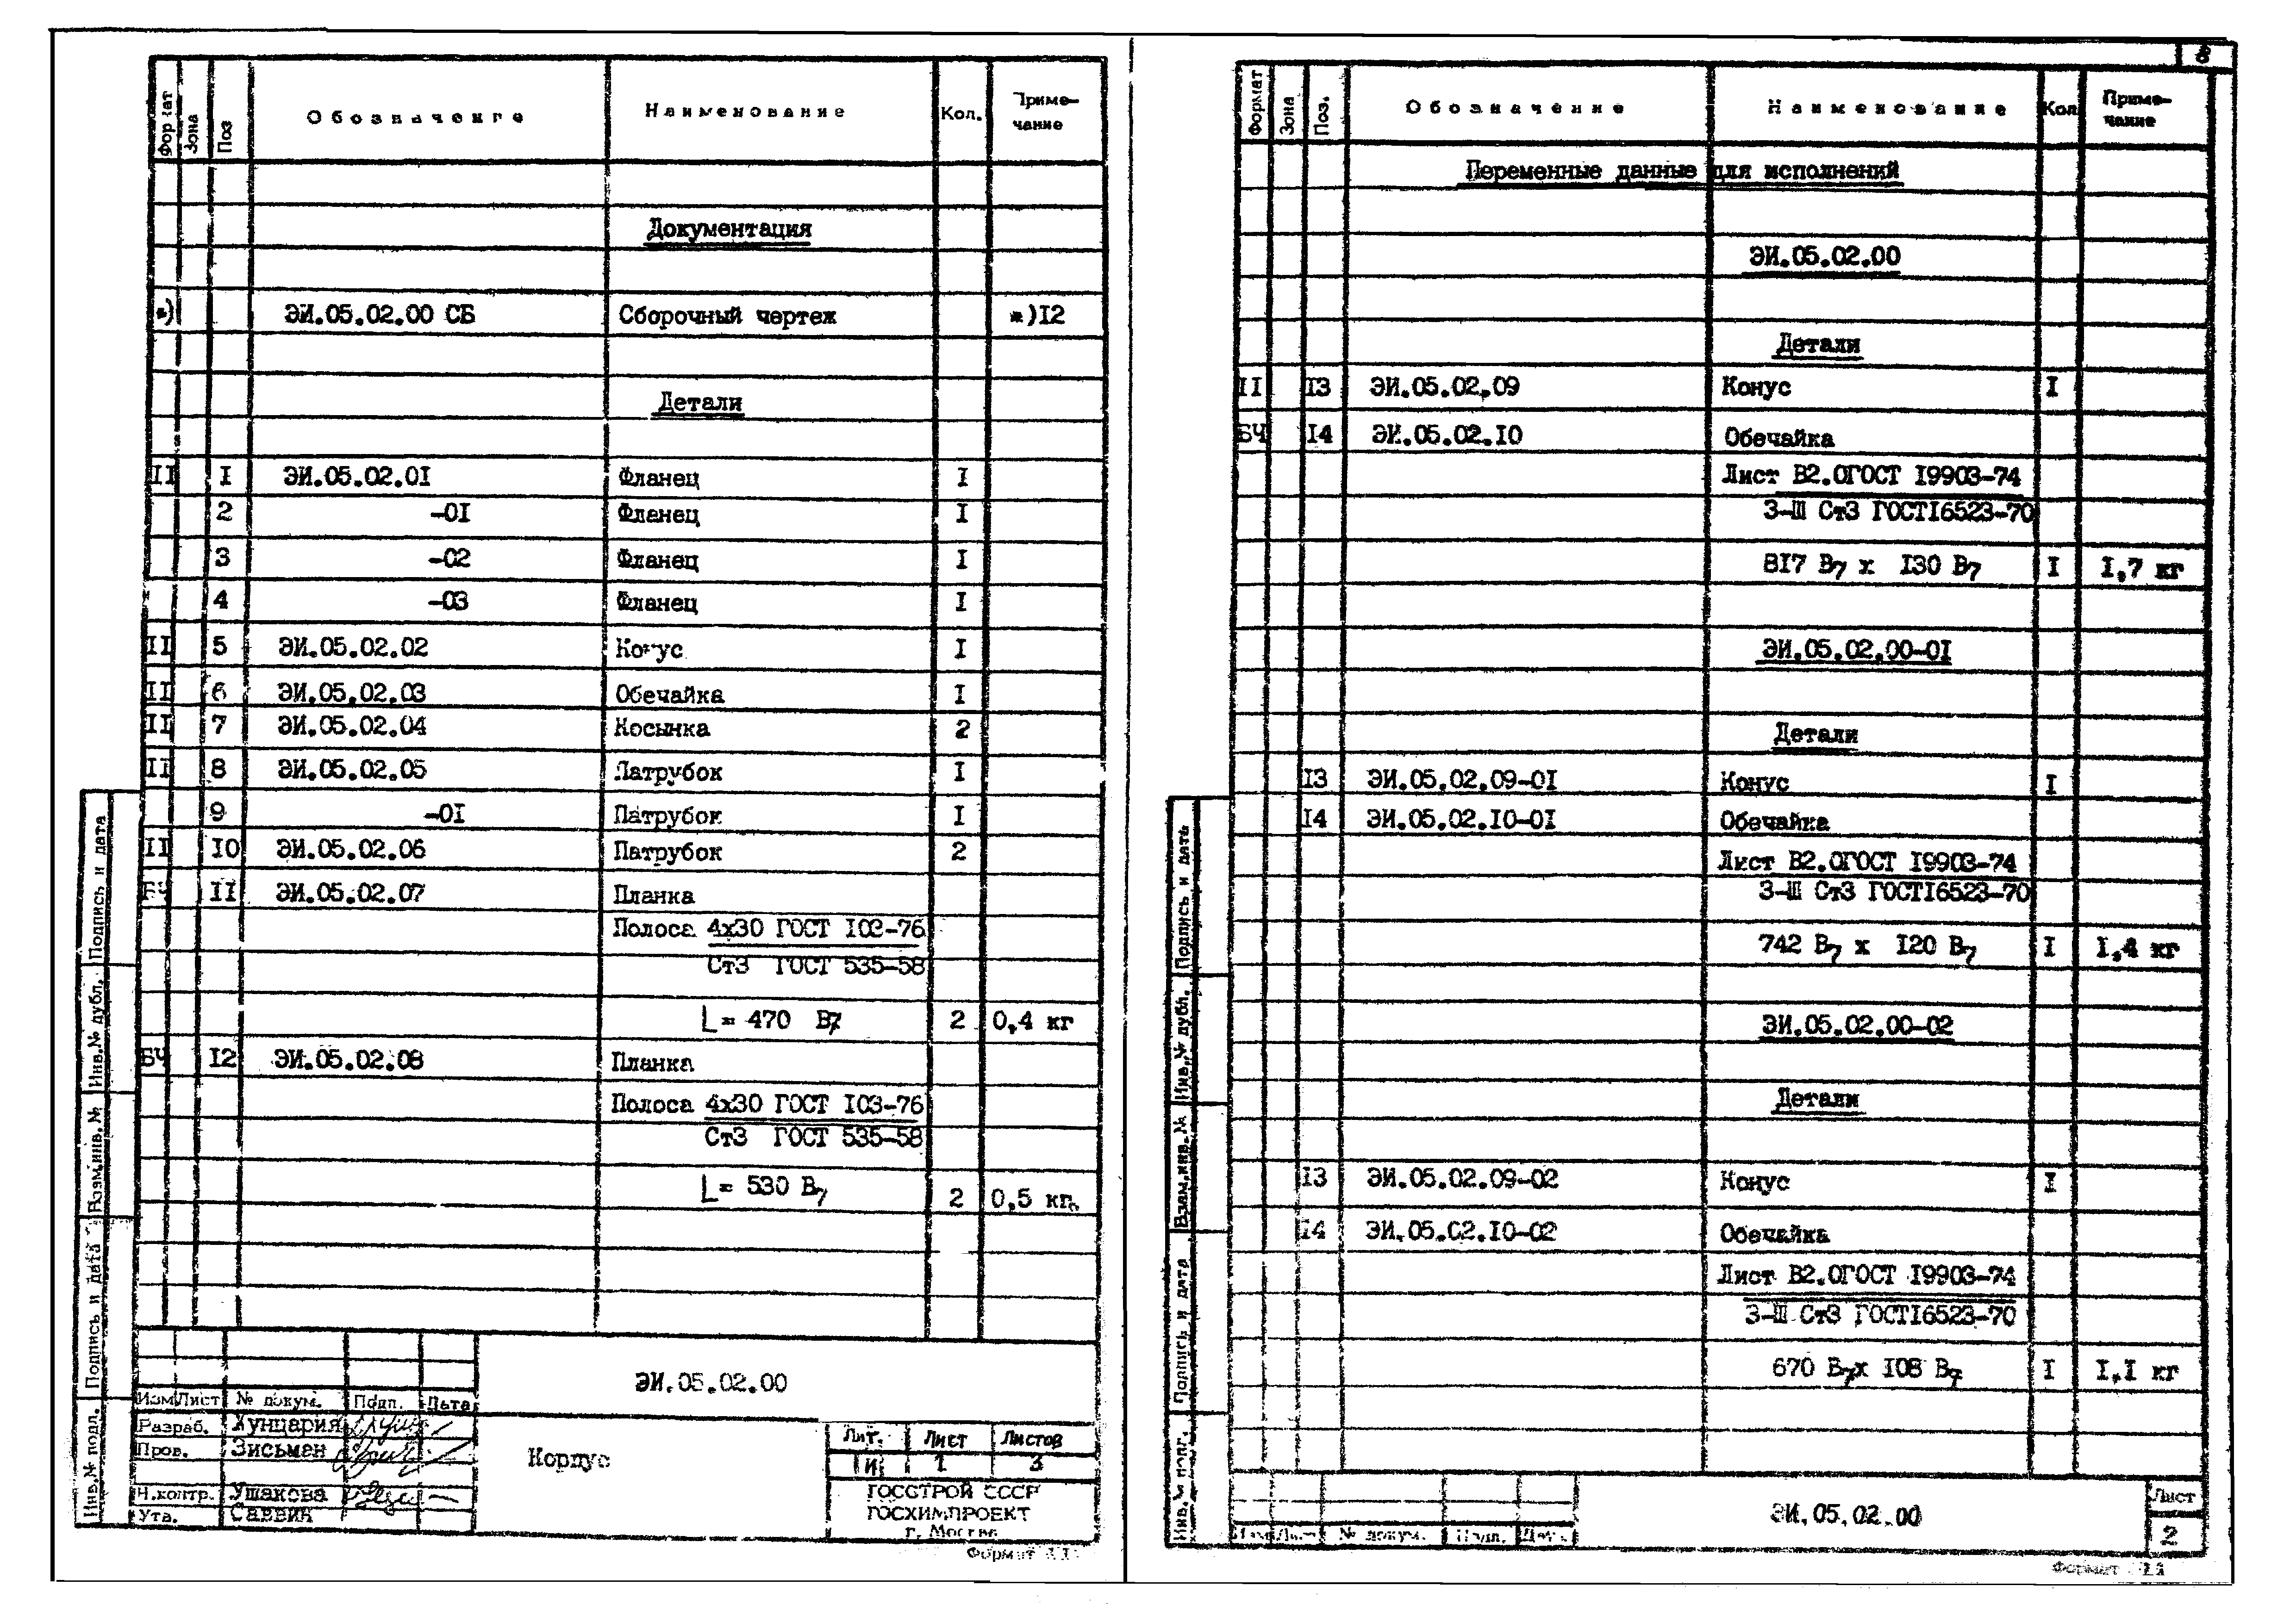 Формат Зона Поз Обозначение Наименование Кол. Приме-
чание
Документация
*) ЭИ.05.02.00 СБ Сборочный чертеж *)I2
Детали
II I ЭИ.05.02.0I Фланец I
2 -0I Фланец I
3 -02 Фланец I
4 -03 Фланец I
II 5 ЭИ.05.02.02 Конус I
II 6 ЭИ.05.02.03 Обечайка I
II 7 ЭИ.05.02.04 Косынка 2
II 8 ЭИ.05.02.05 Патрубок I
9 -0I Патрубок I
II I0 ЭИ.05.02.06 Патрубок 2
БЧ II ЭИ.05.02.07 Планка
Полоса 4х30 ГОСТ I03-76
Ст3 ГОСТ 535-58
L= 470 В7 2 0,4 кг
БЧ I2 ЭИ.05.02.08 Планка
Полоса 4х30 ГОСТ I03-76
Ст3 ГОСТ 535-58
L= 530 В7 2 0,5 кг.
Инв.№ подл. Подпись и дата Взам.инв.№ Инв.№ дубл. Подпись и дата
ЭИ.05.02.00
Изм Лист № докум. Подп. Дата
Разраб. Хунцария
Пров. Зисьман
Н.контр. Ушакова
Утв. Саввин
Корпус
Лит. Лист Листов
И 1 3
ГОССТРОЙ СССР
ГОСХИМПРОЕКТ
г. Москва
Формат 11
8
Формат Зона Поз. Обозначение Наименование Кол Приме-
чание
Переменные данные для исполнений
ЭИ.05.02.00
Детали
II I3 ЭИ.05.02.09 Конус I
БЧ I4 ЭИ.05.02.I0 Обечайка
Лист В2.0ГОСТ I9903-74
3-Ш Ст3 ГОСТI6523-70
8I7 В7 х I30 В7 I I,7 кг
ЭИ.05.02.00-0I
Детали
I3 ЭИ.05.02.09-0I Конус I
I4 ЭИ.05.02.I0-0I Обечайка
Лист В2.0ГОСТ I9903-74
3-Ш Ст3 ГОСТI6523-70
742 В7 х I20 В7 I I,4 кг
ЭИ.05.02.00-02
Детали
I3 ЭИ.05.02.09-02 Конус I
I4 ЭИ.05.02.I0-02 Обечайка
Лист В2.0ГОСТ I9903-74
3-Ш Ст3 ГОСТI6523-70
670 В7х I08 В7 I I,I кг
Инв.№ подл. Подпись и дата Взам.инв.№ Инв.№ дубл. Подпись и дата
Изм Лист № докум. Подп. Дата
ЭИ.05.02.00
Лист
2
Формат 11